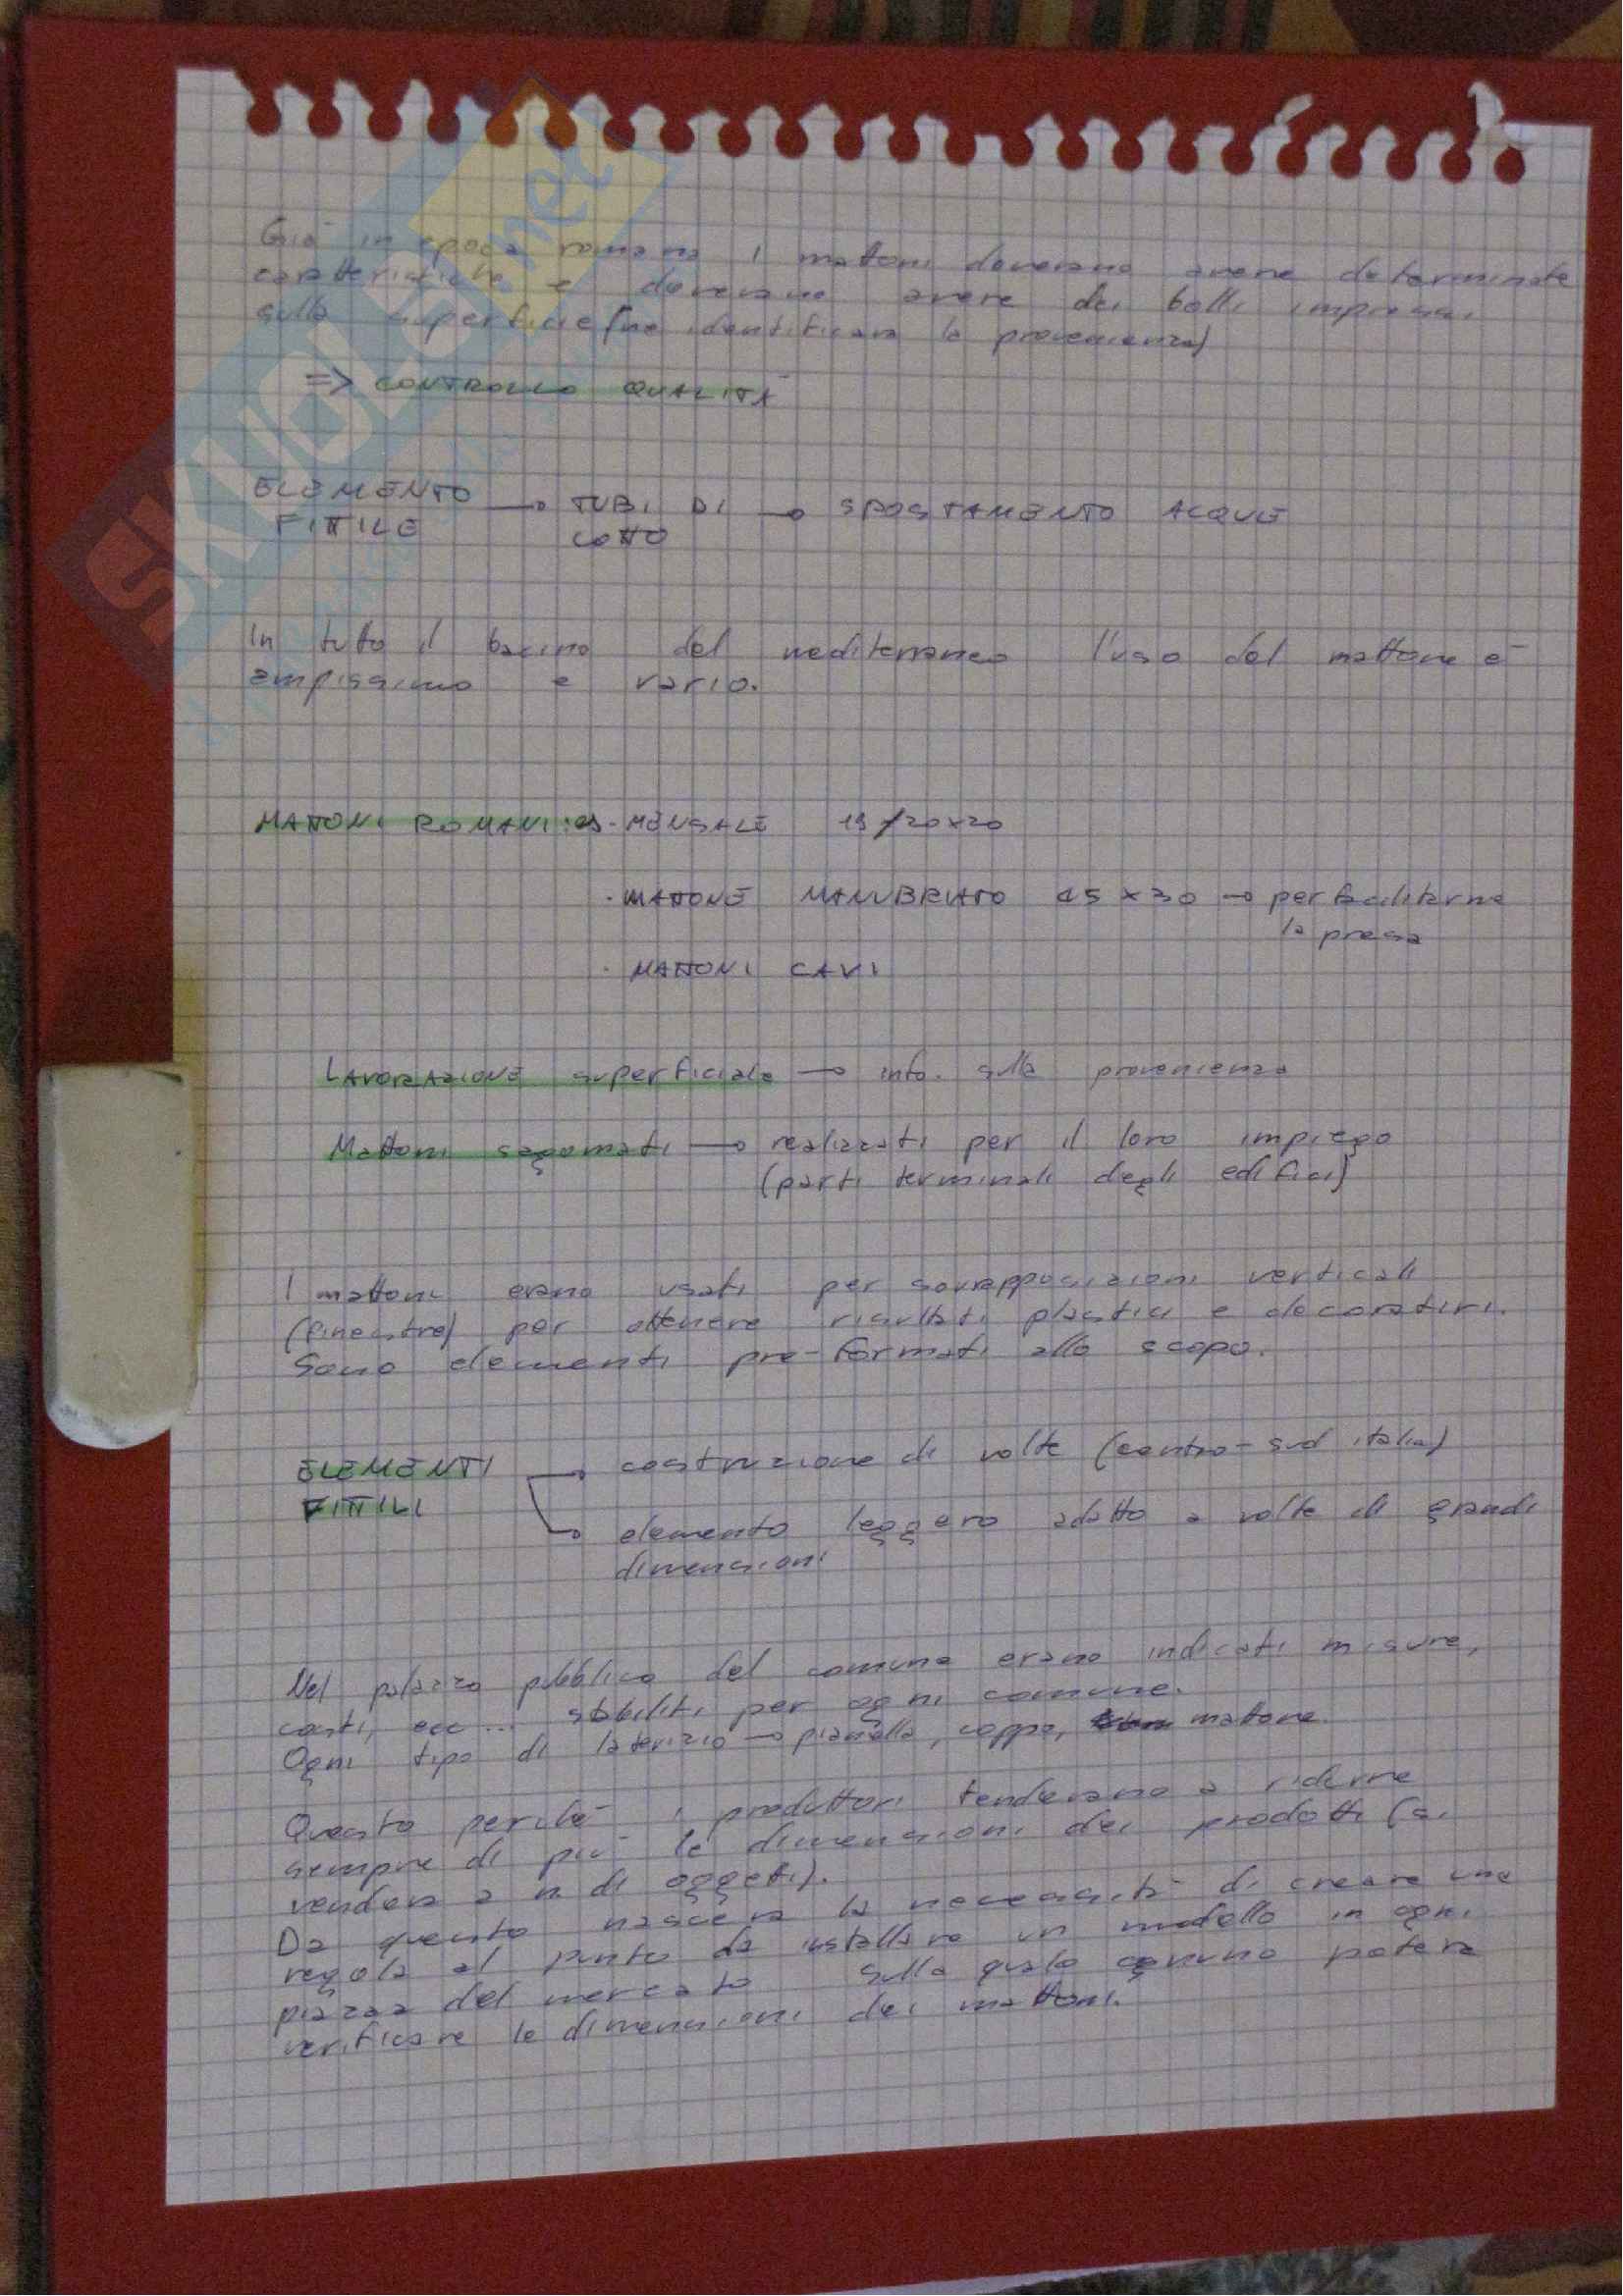 Già in epoca romana i mattoni dovevano avere determinate
caratteristiche e dovevano avere dei bolli impressi
sulla superficie (ne identificava la provenienza)
=> CONTROLLO QUALITÀ
ELEMENTO FITTILE → TUBI DI COTTO → SPOSTAMENTO ACQUE
In tutto il bacino del mediterraneo l'uso del mattone è
ampissimo e vario.
MATTONI ROMANI: es. MENSALE 19/20x20
· MATTONE MANUBRIATO 45x30 → per facilitarne
la presa
· MATTONI CAVI
LAVORAZIONE superficiale → info. sulla provenienza
Mattoni sagomati → realizzati per il loro impiego
(parti terminali degli edifici)
I mattoni erano usati per sovrapposizioni verticali
(finestre) per ottenere risultati plastici e decorativi.
Sono elementi pre-formati allo scopo.
ELEMENTI FITTILI → costruzione di volte (centro-sud italia)
→ elemento leggero adatto a volte di grandi
dimensioni
Nel palazzo pubblico del comune erano indicati misure,
costi, ecc... stabiliti per ogni comune.
Ogni tipo di laterizio → pianella, coppo, mattone
Questo perché i produttori tendevano a ridurne
sempre di più le dimensioni dei prodotti (si
vendeva a n. di oggetti).
Da questo nasceva la necessità di creare una
regola al punto da installare un modello in ogni
piazza del mercato sulla quale ognuno poteva
verificare le dimensioni dei mattoni.
SKUOLA.net